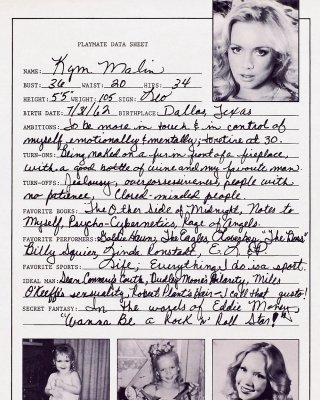 PLAYMATE DATA SHEET
NAME: Kym Malin
BUST: 36" WAIST: 20 HIPS: 34
HEIGHT: 5'5" WEIGHT: 105 SIGN: Leo
BIRTH DATE: 7/31/62 BIRTHPLACE: Dallas, Texas
AMBITIONS: To be more in touch & in control of
myself emotionally & mentally; to retire at 30.
TURN-ONS: Being naked on a fur in front of a fireplace,
with a good bottle of wine and my favorite man.
TURN-OFFS: Jealousy, overpossessiveness, people with
no patience, closed-minded people.
FAVORITE BOOKS: The Other Side of Midnight, Notes to
Myself, Psycho-Cybernetics, Rage of Angels.
FAVORITE PERFORMERS: Goldie Hawn, The Eagles, "The Dons"
Billy Squier, Linda Ronstadt, E.L.P.
FAVORITE SPORTS: Life; Everything I do is a sport.
IDEAL MAN: Sean Connery's Couth, Dudley Moore's hilarity, Miles
O'Keeffe's sensuality, Robert Plant's Hair - I call that gusto!
SECRET FANTASY: In the words of Eddie Money
"Wanna Be a Rock 'n' Roll Star!"